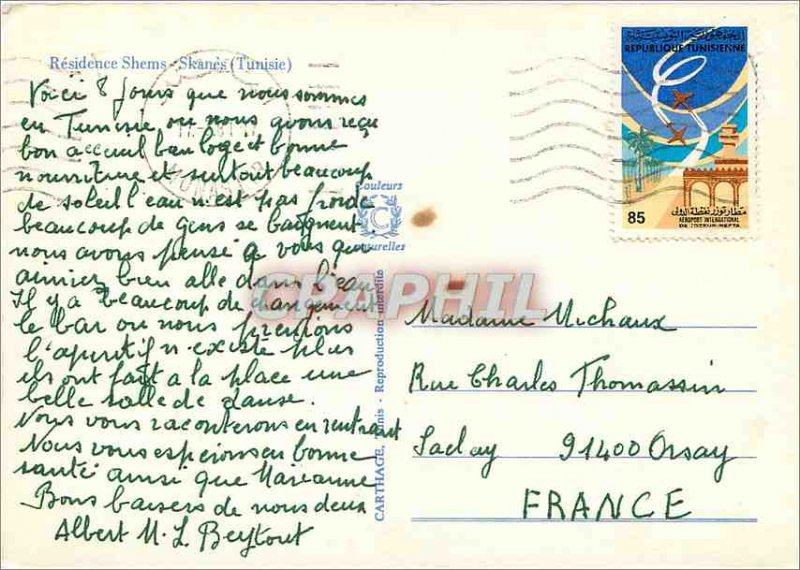 Résidence Shems - Skanès (Tunisie)
Voici 8 jours que nous sommes
en Tunisie ou nous avons reçu
bon accueil bon loge et bonne
nourriture et surtout beaucoup
de soleil l'eau n'est pas froide
beaucoup de gens se baignent
nous avons pensé a vous qui
aimiez bien allé dans l'eau
Il y a beaucoup de changement
le bar ou nous prenions
l'apéritif n'existe plus
ils ont fait a la place une
belle salle de danse.
Nous vous raconterons en rentrant
Nous vous espérons en bonne
santé ainsi que Marianne
Bons baisers de nous deux
Albert M. L Beytout
Couleurs
C
Naturelles
CARTHAGE, Tunis - Reproduction interdite
CPAPHIL
الجمهورية التونسية
REPUBLIQUE TUNISIENNE
85
مطار توزر نفطة الدولي
AEROPORT INTERNATIONAL
DE TOZEUR-NEFTA
Madame Michaux
Rue Charles Thomassin
Saclay 91400 Orsay
FRANCE